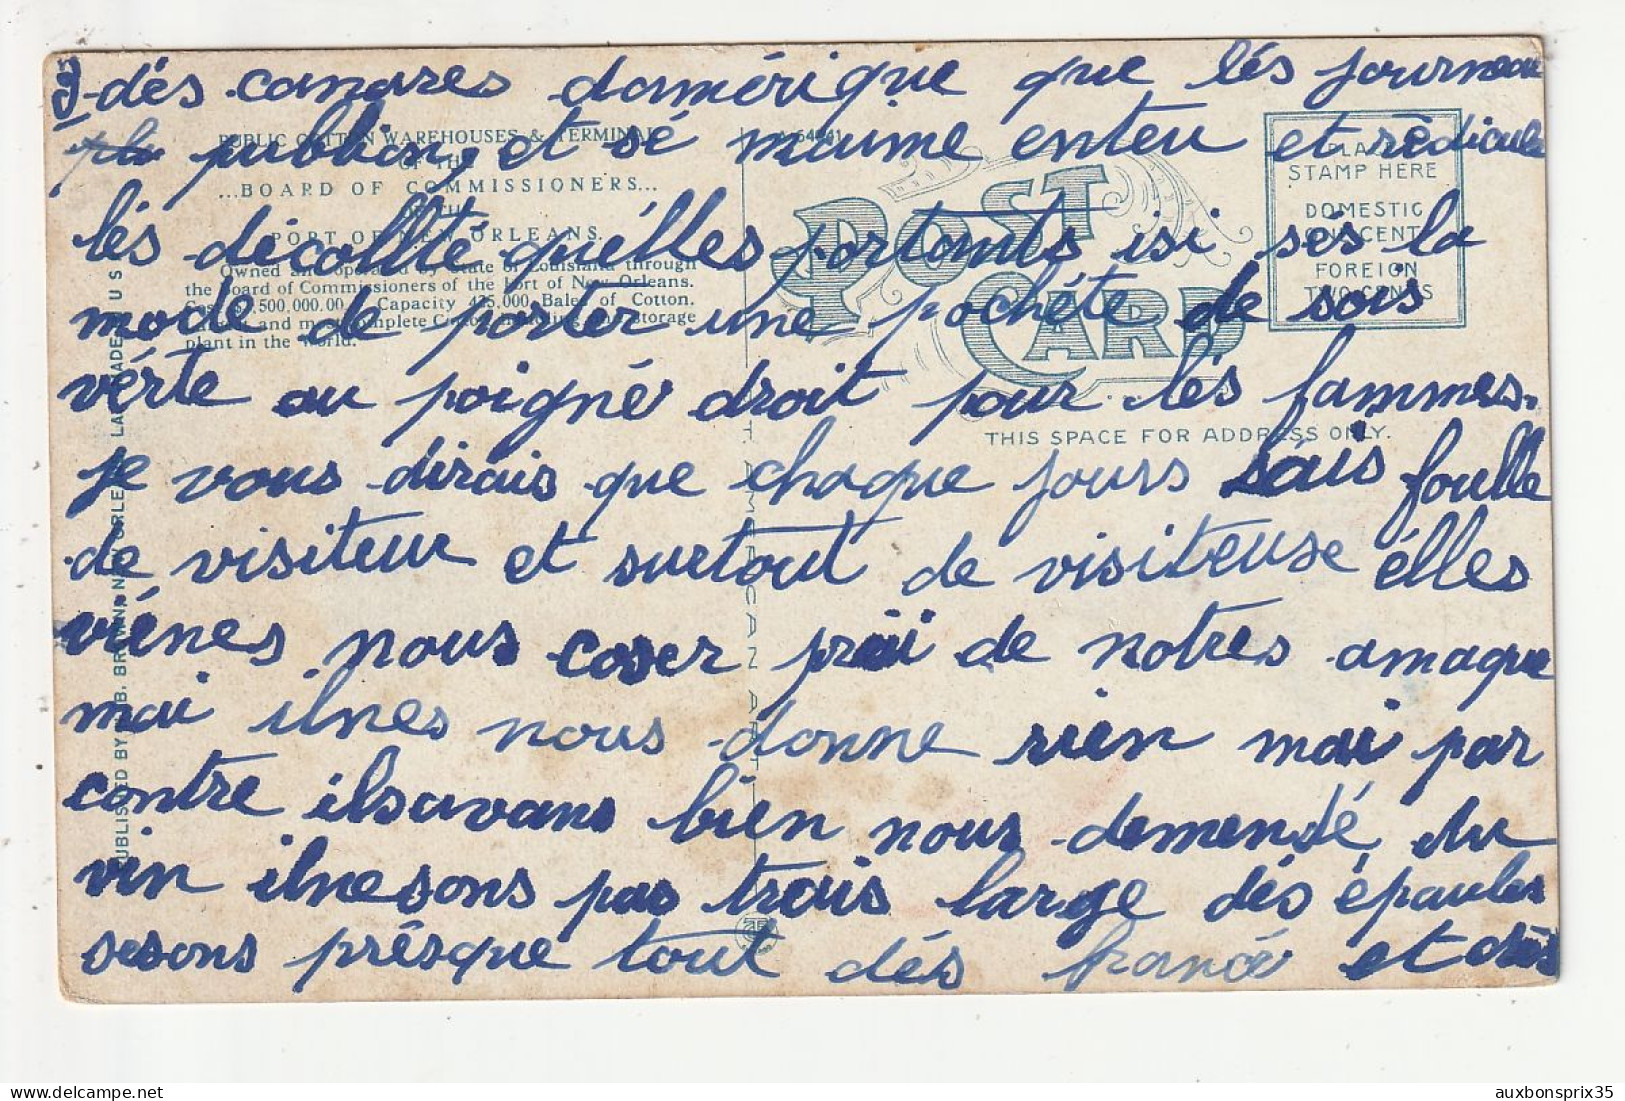 dés canares damérique que lés journeau
publion, et sé maime enteu et rèdicule
lés décolté quélles portants isi ses la
mode de porter une pochéte de sois
vérte au poigné droit pour lés fammes.
je vous dirais que chaque jours sais foulle
de visiteur et surtout de visiteuse élles
viénes nous coser prái de notres amaque
mai ilnes nous donne rien mai par
contre ilsavans bien nous demendé du
vin ilnesons pas trois large dés épaules
sesons présque tout dés francé et dés
PUBLIC COTTON WAREHOUSES & TERMINAL
OF THE
...BOARD OF COMMISSIONERS...
OF THE
PORT OF NEW ORLEANS.
Owned and operated by State of Louisiana through
the Board of Commissioners of the Port of New Orleans.
Cost ,500,000.00. Capacity 425,000 Bales of Cotton.
and most complete Cotton and storage
plant in the world.
POST CARD
PLACE
STAMP HERE
DOMESTIC
ONE CENT
FOREIGN
TWO CENTS
THIS SPACE FOR ADDRESS ONLY.
PUBLISHED BY B. BROWN, NEW ORLEANS, LA. MADE IN U S
AMERICAN ART
auxbonsprix35